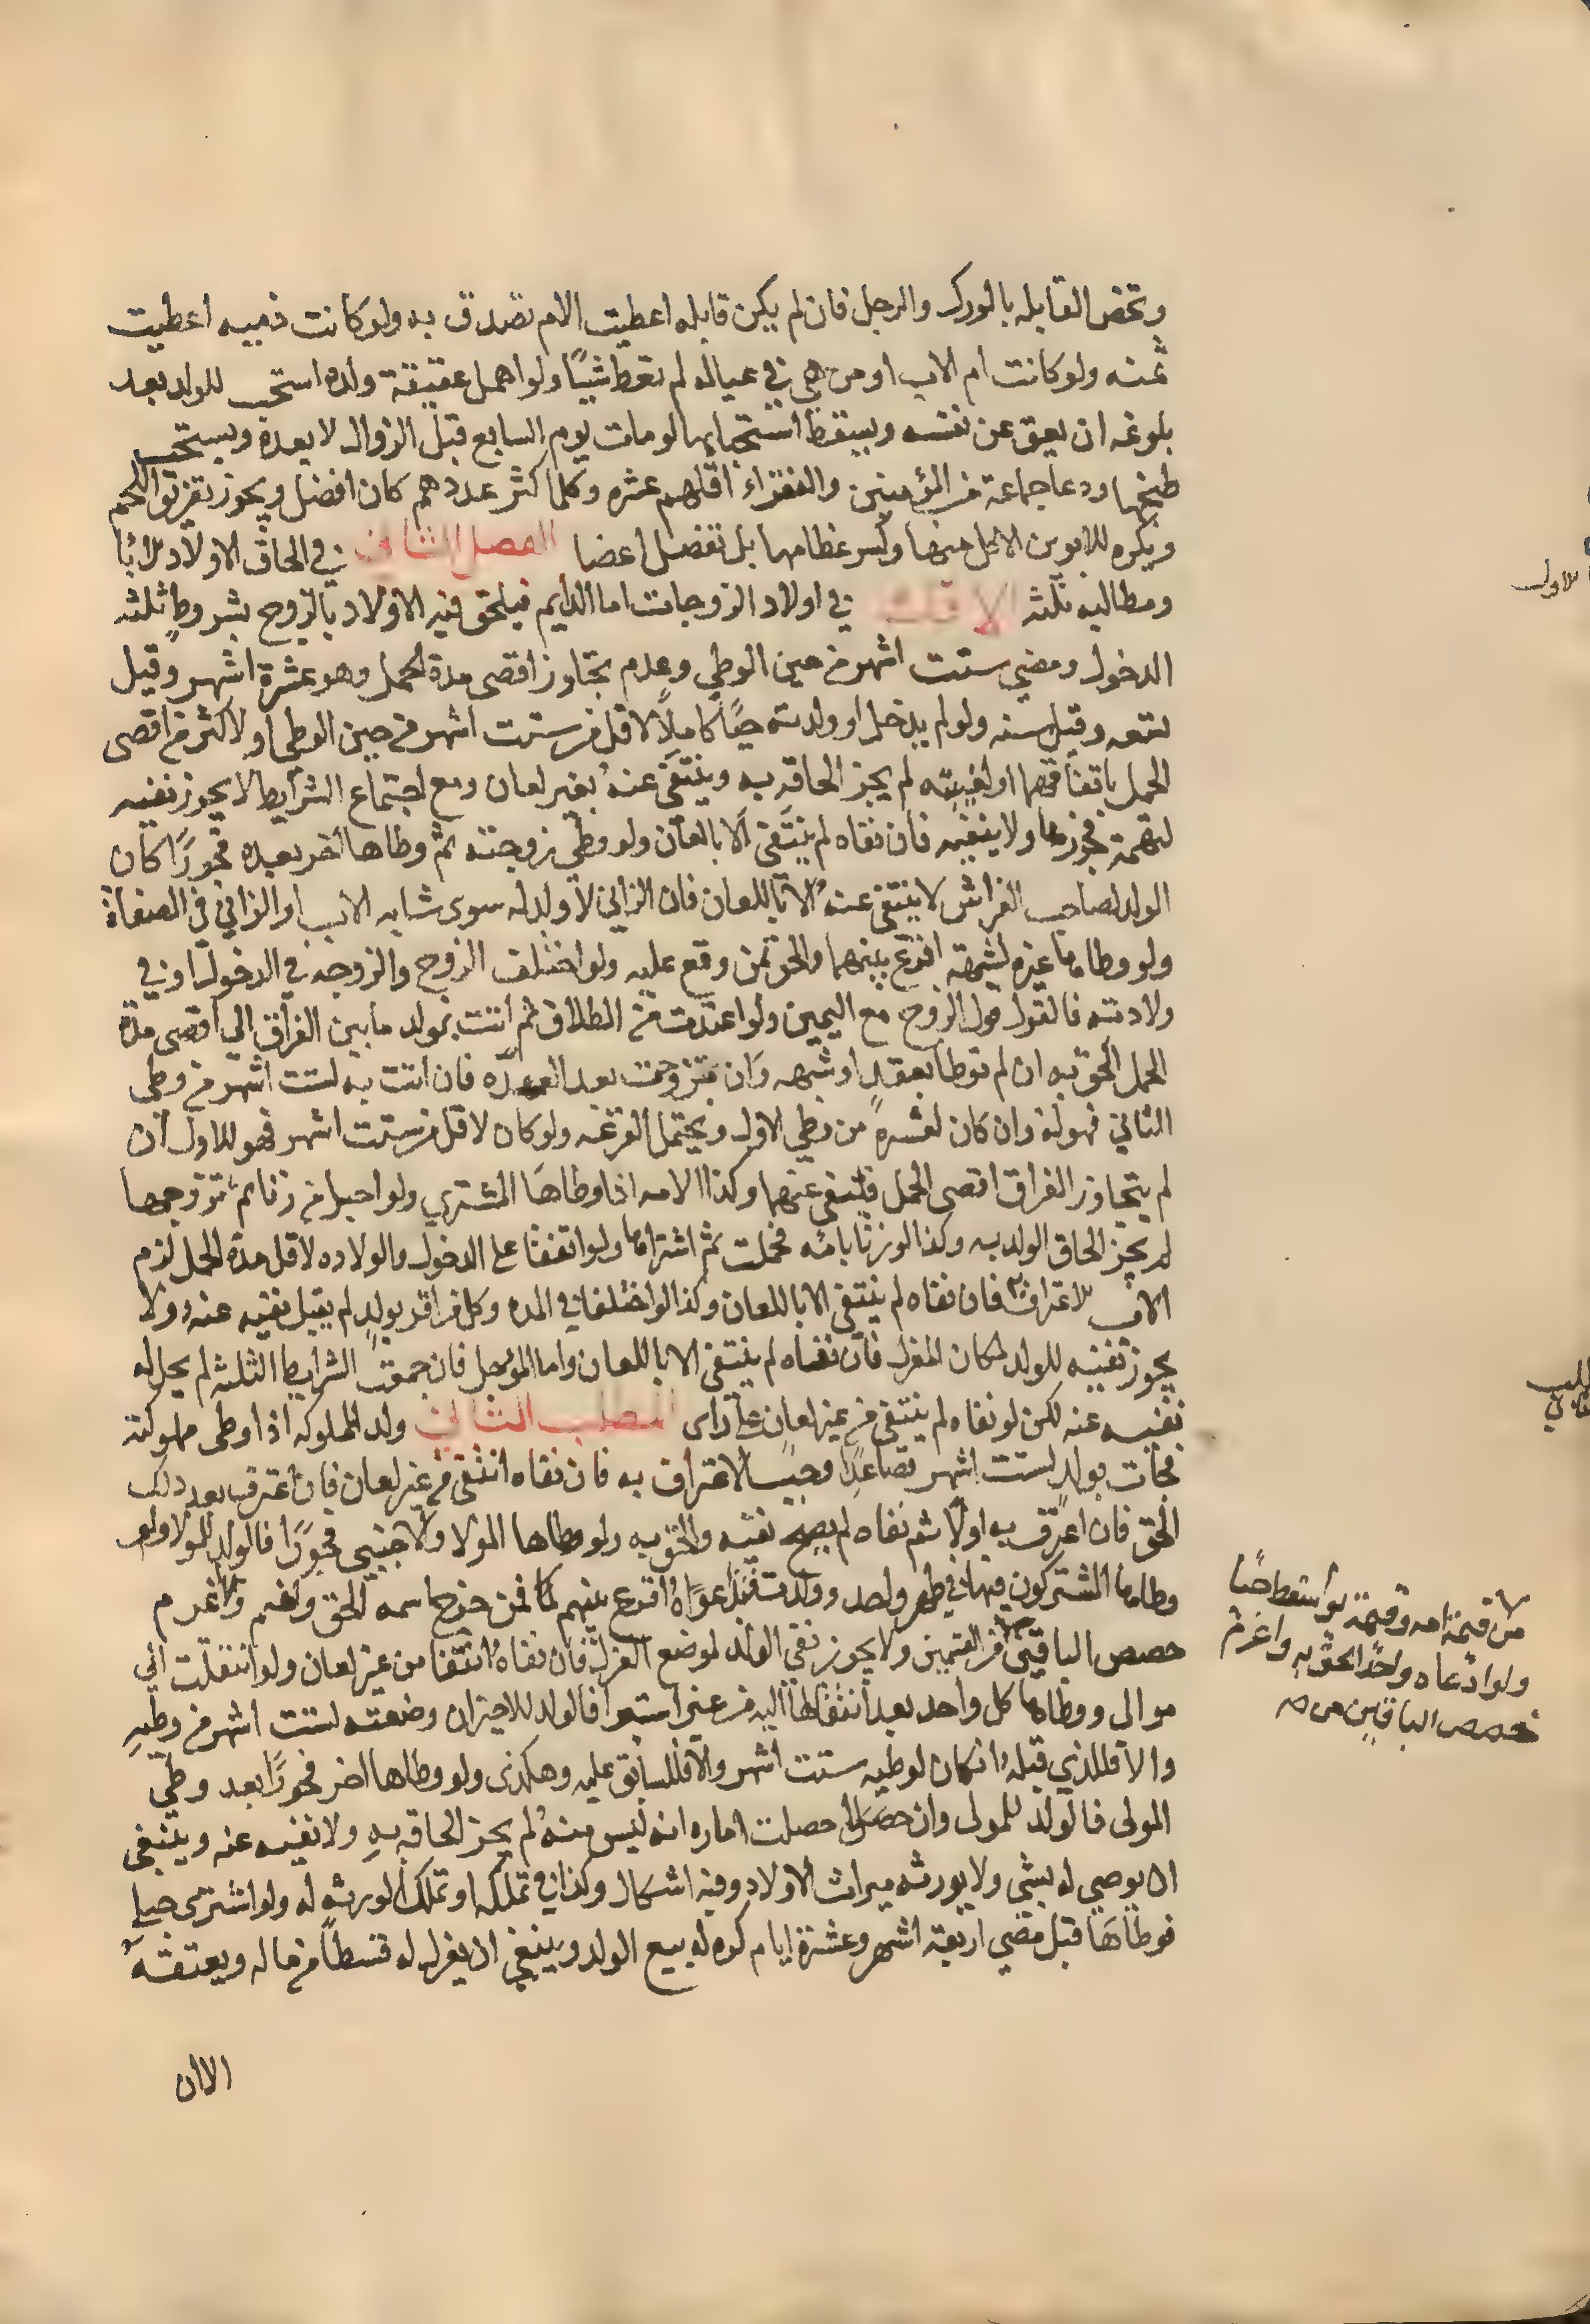 وتخص القابله بالورك والرجل فان لم يكن قابله اعطيت الام تصدق به ولو كانت ذميه اعطيت
ثمنه ولو كانت ام الاب او من هي في عياله لم تعط شيئًا ولو اهمل عقيقة ولده استحب للولد بعد
بلوغه ان يعق عن نفسه ويسقط استحبابها لو مات يوم السابع قبل الزوال لا بعده ويستحب
طبخها ودعا جماعة من المؤمنين والفقراء اقلهم عشره وكلما كثر عددهم كان افضل ويجوز تفرقة اللحم
ويكره للابوين الاكل منها وكسر عظامها بل تفصل اعضا الفصل الثاني في الحاق الاولاد بالابا
ومطالبه ثلثه الاول في اولاد الزوجات اما الدايم فيلحق فيه الاولاد بالزوج بشروط ثلثه
الدخول ومضي ستت اشهر من حين الوطي وعدم تجاوز اقصى مدة الحمل وهو عشرة اشهر وقيل
تسعه وقيل سنه ولو لم يدخل او ولدته حيًا كاملًا لاقل من ستت اشهر من حين الوطي او لاكثر من اقصى
الحمل باتفاقهما او لغيبته لم يجز الحاقه به وينتفي عنه بغير لعان ومع اجتماع الشرايط لا يجوز نفيه
لتهمة فجورها ولا ينفيه فان نفاه لم ينتفي الا بالعان ولو وطي زوجته ثم وطاها اخر بعده فجورًا كان
الولد لصاحب الفراش لا ينتفي عنه الا باللعان فان الزاني لا ولد له سوى شابه الاب او الزاني في الصفاة
ولو وطاها غيره لشبهة اقرع بينهما والحق بمن وقع عليه ولو اختلف الزوج والزوجه في الدخول او في
ولادته فالقول قول الزوج مع اليمين ولو اعتدت من الطلاق ثم اتت بولد ما بين الفراق الى اقصى مدة
الحمل الحق به ان لم توطا بعقد او شبهه وان تزوجت بعد العده فان اتت به لستت اشهر من وطي
الثاني فهو له وان كان لعشرة من وطي الاول ويحتمل القرعه ولو كان لاقل من ستت اشهر فهو للاول ان
لم يتجاوز الفراق اقصى الحمل فينتفي عنهما وكذا الامه اذا وطاها المشتري ولو احبل من زنا ثم تزوجها
لم يجز الحاق الولد به وكذا لو زنا بامه فحملت ثم اشتراها ولو اتفقا على الدخول والولاده لاقل مدة الحمل لزم
الاب الاعتراف فان نفاه لم ينتفي الا باللعان وكذا لو اختلفا في المده وكل من اقر بولد لم يقبل نفيه عنه ولا
يجوز نفيه للولد لمكان العزل فان نفاه لم ينتفي الا باللعان واما الموجل فان جمعت الشرايط الثلثه لم يحل له
نفيه عنه لكن لو نفاه لم ينتفي من غير لعان على راى المطلب الثاني ولد المملوكه اذا وطي مملوكته
فجات بولد لستت اشهر فصاعدًا وجب الاعتراف به فان نفاه انتفي من غير لعان فان اعترف بعد ذلك
الحق فان اعترف به اولًا ثم نفاه لم يصح نفيه والحق به ولو وطاها المولا والاجنبي فجورًا فالولد للمولا ولو
وطاها المشتركون فيها في طهر واحد وولدت فتداعوه اقرع بينهم فمن خرج اسمه الحق به واغرم
حصص الباقين من القيمتين ولا يجوز نفي الولد لموضع العزل فان نفاه انتفا من غير لعان ولو انتقلت الى
موالى ووطاها كل واحد بعد انتقالها اليه من غير استبرا فالولد للاخير ان وضعته لستت اشهر من وطيه
والا فللذي قبله ان كان لوطيه ستت اشهر والا فللسابق عليه وهكذى ولو وطاها اخر فجورًا بعد وطي
المولى فالولد للمولى وان حصلت اماره انه ليس منه لم يجز الحاقه به ولا نفيه عنه وينبغي
ان يوصي له بشي ولا يورثه ميراث الاولاد وفيه اشكال وكذا في تملكه او تملك الورثه له ولو اشترى حبلى
فوطاها قبل مضي اربعة اشهر وعشرة ايام كره له بيع الولد وينبغي ان يعزل له قسطًا من ماله ويعتقه
الا ان
من قيمة امه وقيمته يوم سقط حيًا
ولو ادعاه واحد الحق به واغرم
حصص الباقين من
الاول
المطلب
الثاني